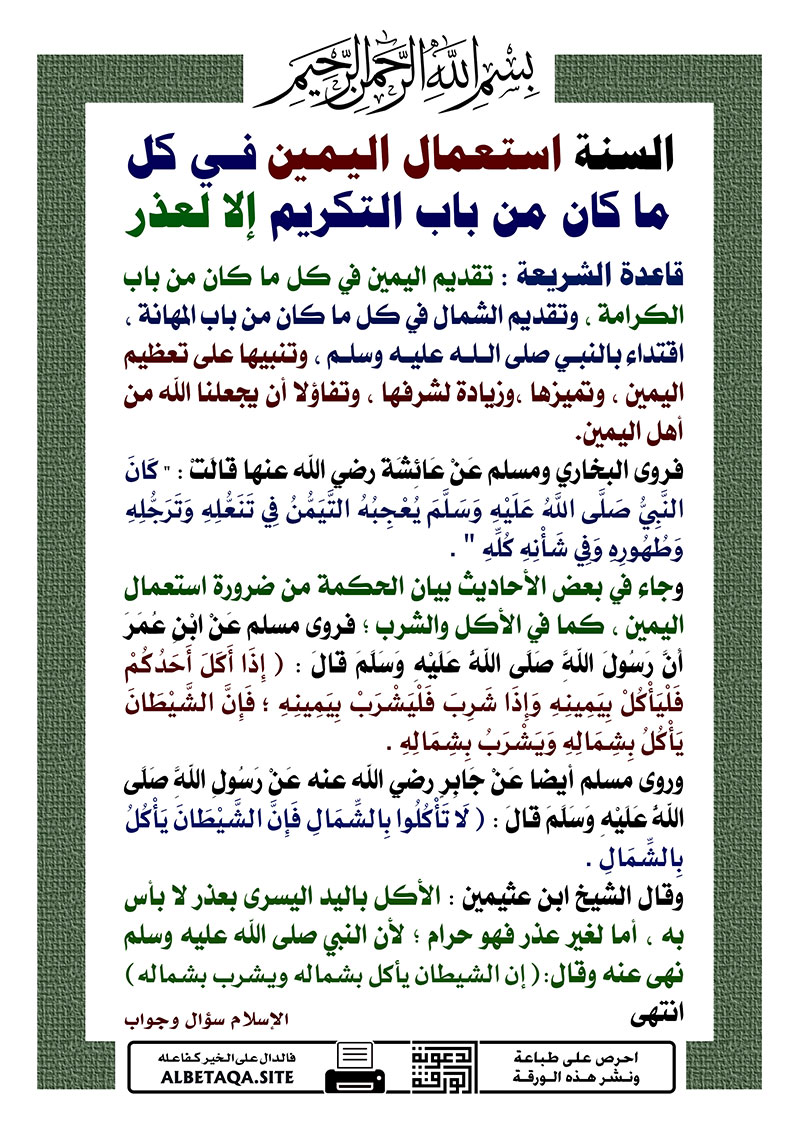 بِسْمِ اللَّهِ الرَّحْمَنِ الرَّحِيمِ
السنة استعمال اليمين في كل
ما كان من باب التكريم إلا لعذر
قاعدة الشريعة : تقديم اليمين في كل ما كان من باب
الكرامة ، وتقديم الشمال في كل ما كان من باب المهانة ،
اقتداء بالنبي صلى الله عليه وسلم ، وتنبيها على تعظيم
اليمين ، وتميزها ،وزيادة لشرفها ، وتفاؤلا أن يجعلنا الله من
أهل اليمين.
فروى البخاري ومسلم عَنْ عَائِشَة رضي الله عنها قالَتْ : " كَانَ
النَّبِيُّ صَلَّى اللَّهُ عَلَيْهِ وَسَلَّمَ يُعْجِبُهُ التَّيَمُّنُ فِي تَنَعُّلِهِ وَتَرَجُّلِهِ
وَطُهُورِهِ وَفِي شَأْنِهِ كُلِّهِ " .
وجاء في بعض الأحاديث بيان الحكمة من ضرورة استعمال
اليمين ، كما في الأكل والشرب ؛ فروى مسلم عَنْ ابْنِ عُمَرَ
أَنَّ رَسُولَ اللَّهِ صَلَّى اللَّهُ عَلَيْهِ وَسَلَّمَ قَالَ : ( إِذَا أَكَلَ أَحَدُكُمْ
فَلْيَأْكُلْ بِيَمِينِهِ وَإِذَا شَرِبَ فَلْيَشْرَبْ بِيَمِينِهِ ؛ فَإِنَّ الشَّيْطَانَ
يَأْكُلُ بِشِمَالِهِ وَيَشْرَبُ بِشِمَالِهِ .
وروى مسلم أيضا عَنْ جَابِرٍ رضي الله عنه عَنْ رَسُولِ اللَّهِ صَلَّى
اللَّهُ عَلَيْهِ وَسَلَّمَ قَالَ : ( لَا تَأْكُلُوا بِالشِّمَالِ فَإِنَّ الشَّيْطَانَ يَأْكُلُ
بِالشِّمَالِ .
وقال الشيخ ابن عثيمين : الأكل باليد اليسرى بعذر لا بأس
به ، أما لغير عذر فهو حرام ؛ لأن النبي صلى الله عليه وسلم
نهى عنه وقال:( إن الشيطان يأكل بشماله ويشرب بشماله)
انتهى
الإسلام سؤال وجواب
احرص على طباعة
ونشر هذه الورقة
الورقة الدعوية
فالدال على الخير كفاعله
ALBETAQA.SITE